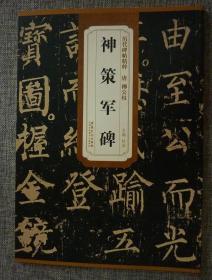 历代碑帖精粹 唐 柳公权
神策军碑
由至公而光
踰五
登
寶圖握金鏡